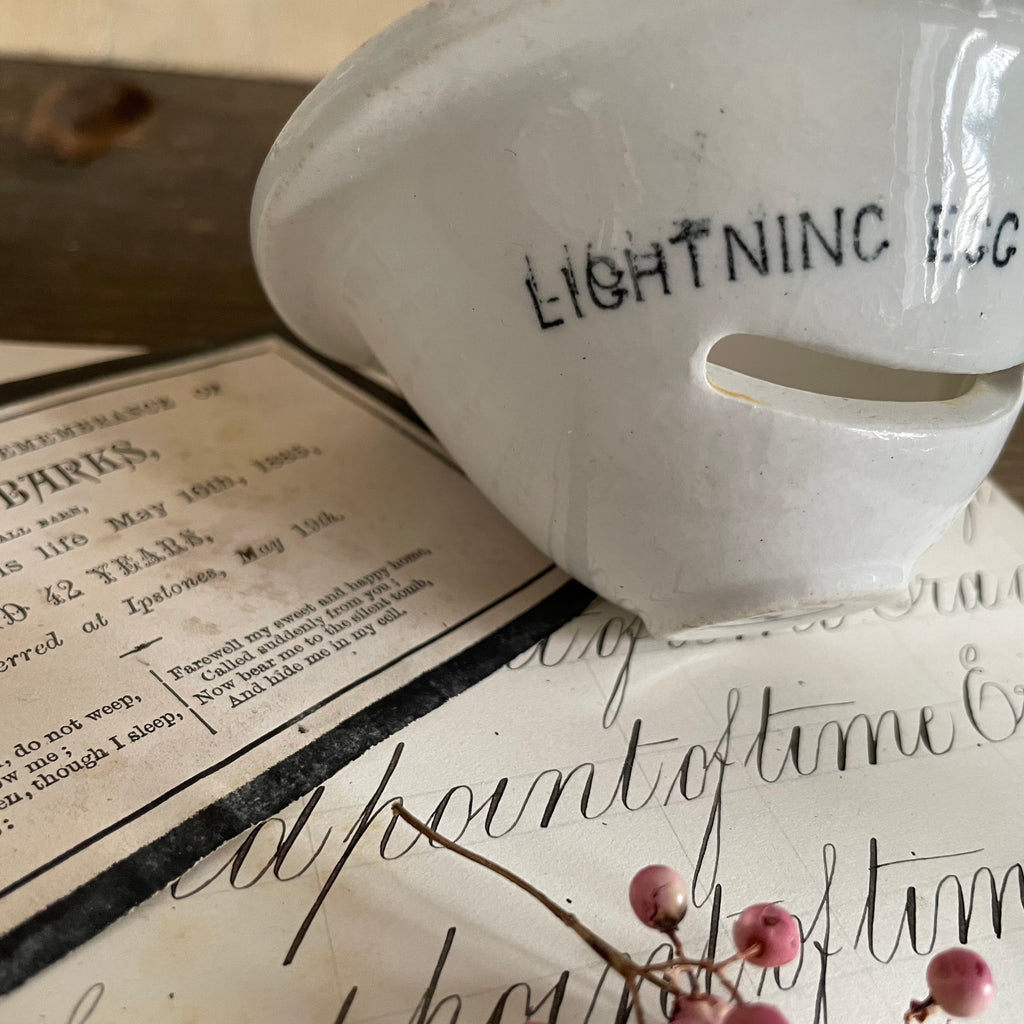 LIGHTNING EGG
REMEMBRANCE OF
BARKS,
ALL BARN,
is life May 16th, 1885,
D 42 YEARS,
erred at Ipstones, May 19th.
Farewell my sweet and happy home,
Called suddenly from you;
Now bear me to the silent tomb,
And hide me in my cell.
, do not weep,
ow me;
en, though I sleep,
a point of time &
point of tim